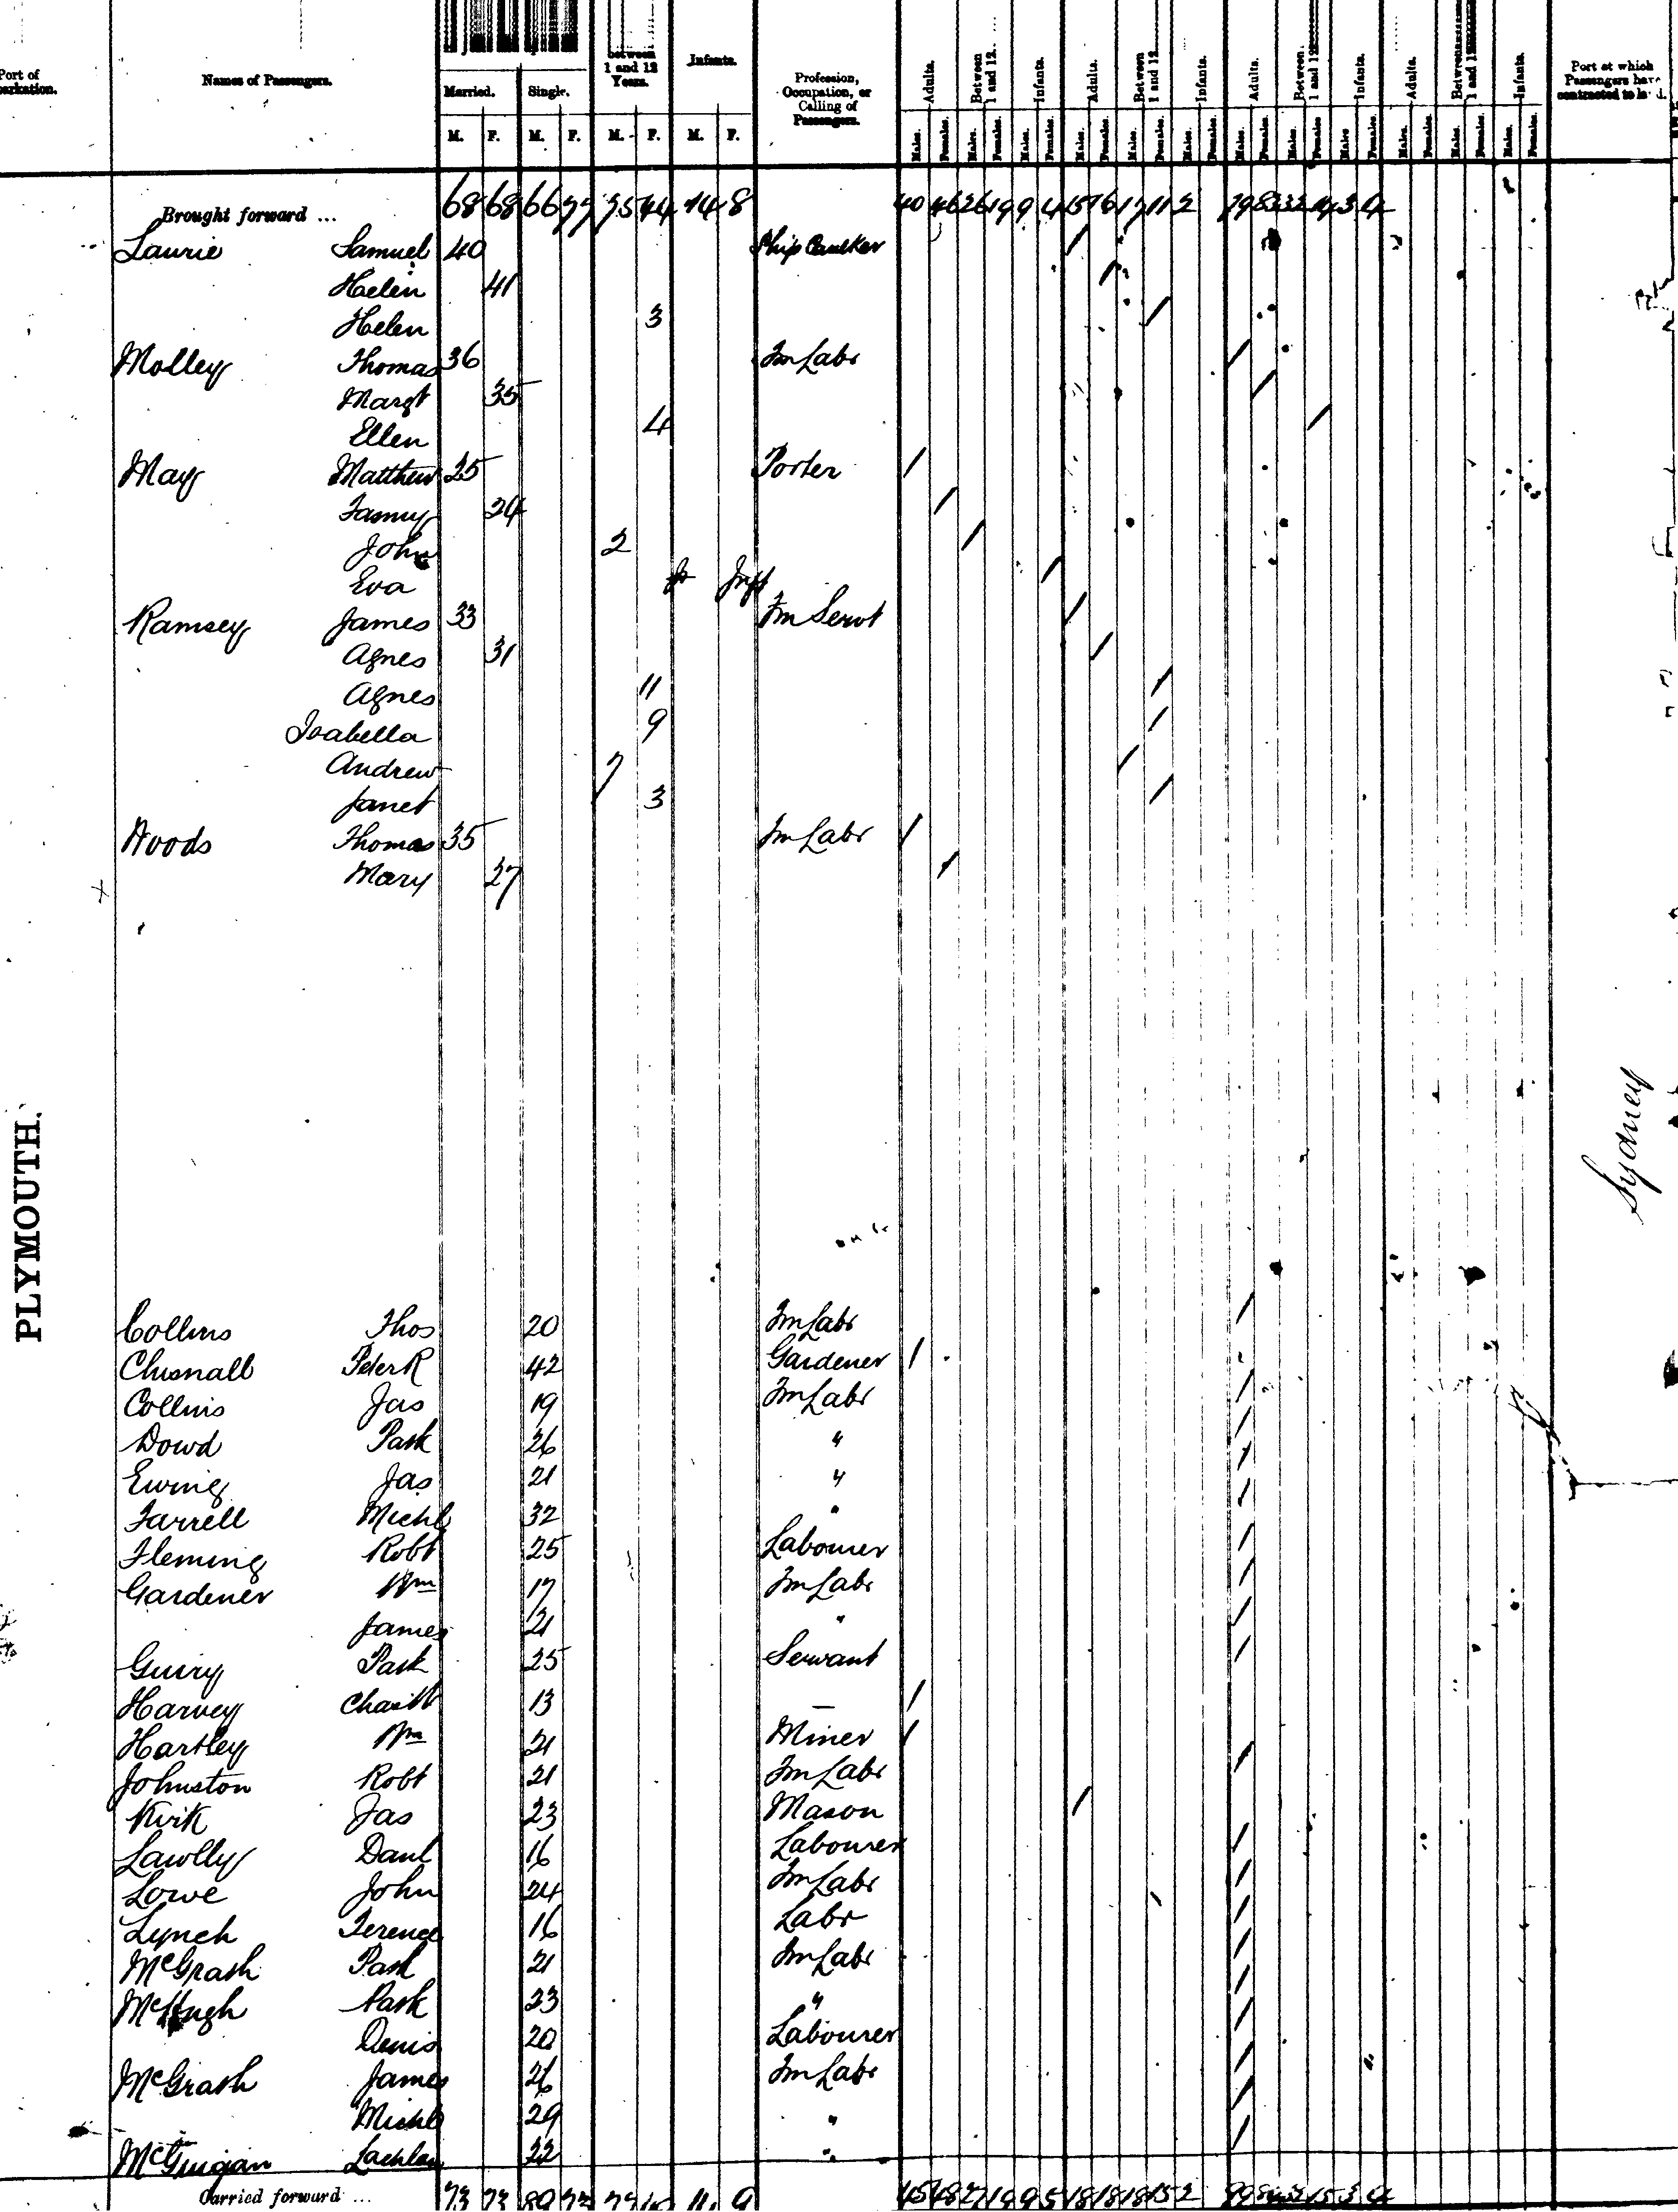 Port of
Embarkation.
Names of Passengers.
Married.
Single.
between
1 and 12
Years.
Infants.
M. F. M. F. M. F. M. F.
Profession,
Occupation, or
Calling of
Passengers.
Adults. Between 1 and 12. Infants. Adults. Between 1 and 12 Infants. Adults. Between 1 and 12 Infants. Adults. Between 1 and 12 Infants.
Males. Females. Males. Females. Males. Females. Males. Females. Males. Females. Males. Females. Males. Females. Males. Females. Male Females. Males. Females. Males. Females. Males. Females.
Port at which
Passengers have
contracted to land.
Brought forward ... 68 68 66 77 75 44 14 8 40 46 26 19 9 4 15 16 17 11 2
Laurie Samuel 40 Ship Caulker /
Helen 41 /
Helen 3 /
Molley Thomas 36 Fm Labr /
Margt 35 /
Ellen 4 /
May Matthew 25 Porter /
Fanny 24 /
John 2 /
Eva Inft /
Ramsey James 33 Fm Servt /
Agnes 31 /
Agnes 11 /
Isabella 9 /
Andrew 7 /
Janet 3 /
Woods Thomas 35 Fm Labr /
Mary 27 /
PLYMOUTH.
Sydney
Collins Thos 20 Fm Labr /
Chisnall Peter R 42 Gardener /
Collins Jas 19 Fm Labr /
Dowd Patk 26 " /
Ewing Jas 21 " /
Farrell Michl 32 " /
Fleming Robt 25 Labourer /
Gardener Wm 17 Fm Labr /
James 21 " /
Guiry Patk 25 Servant /
Harvey Chas W 13 — /
Hartley Wm 21 Miner /
Johnston Robt 21 Fm Labr /
Kirk Jas 23 Mason /
Lawlly Danl 16 Labourer /
Lowe John 24 Fm Labr /
Lynch Terence 16 Labr /
McGrath Patk 21 Fm Labr /
McHugh Patk 23 " /
Denis 20 Labourer /
McGrath James 26 Fm Labr /
Michl 29 " /
McGuigan Lachlan 22 " /
Carried forward ... 73 73 89 77